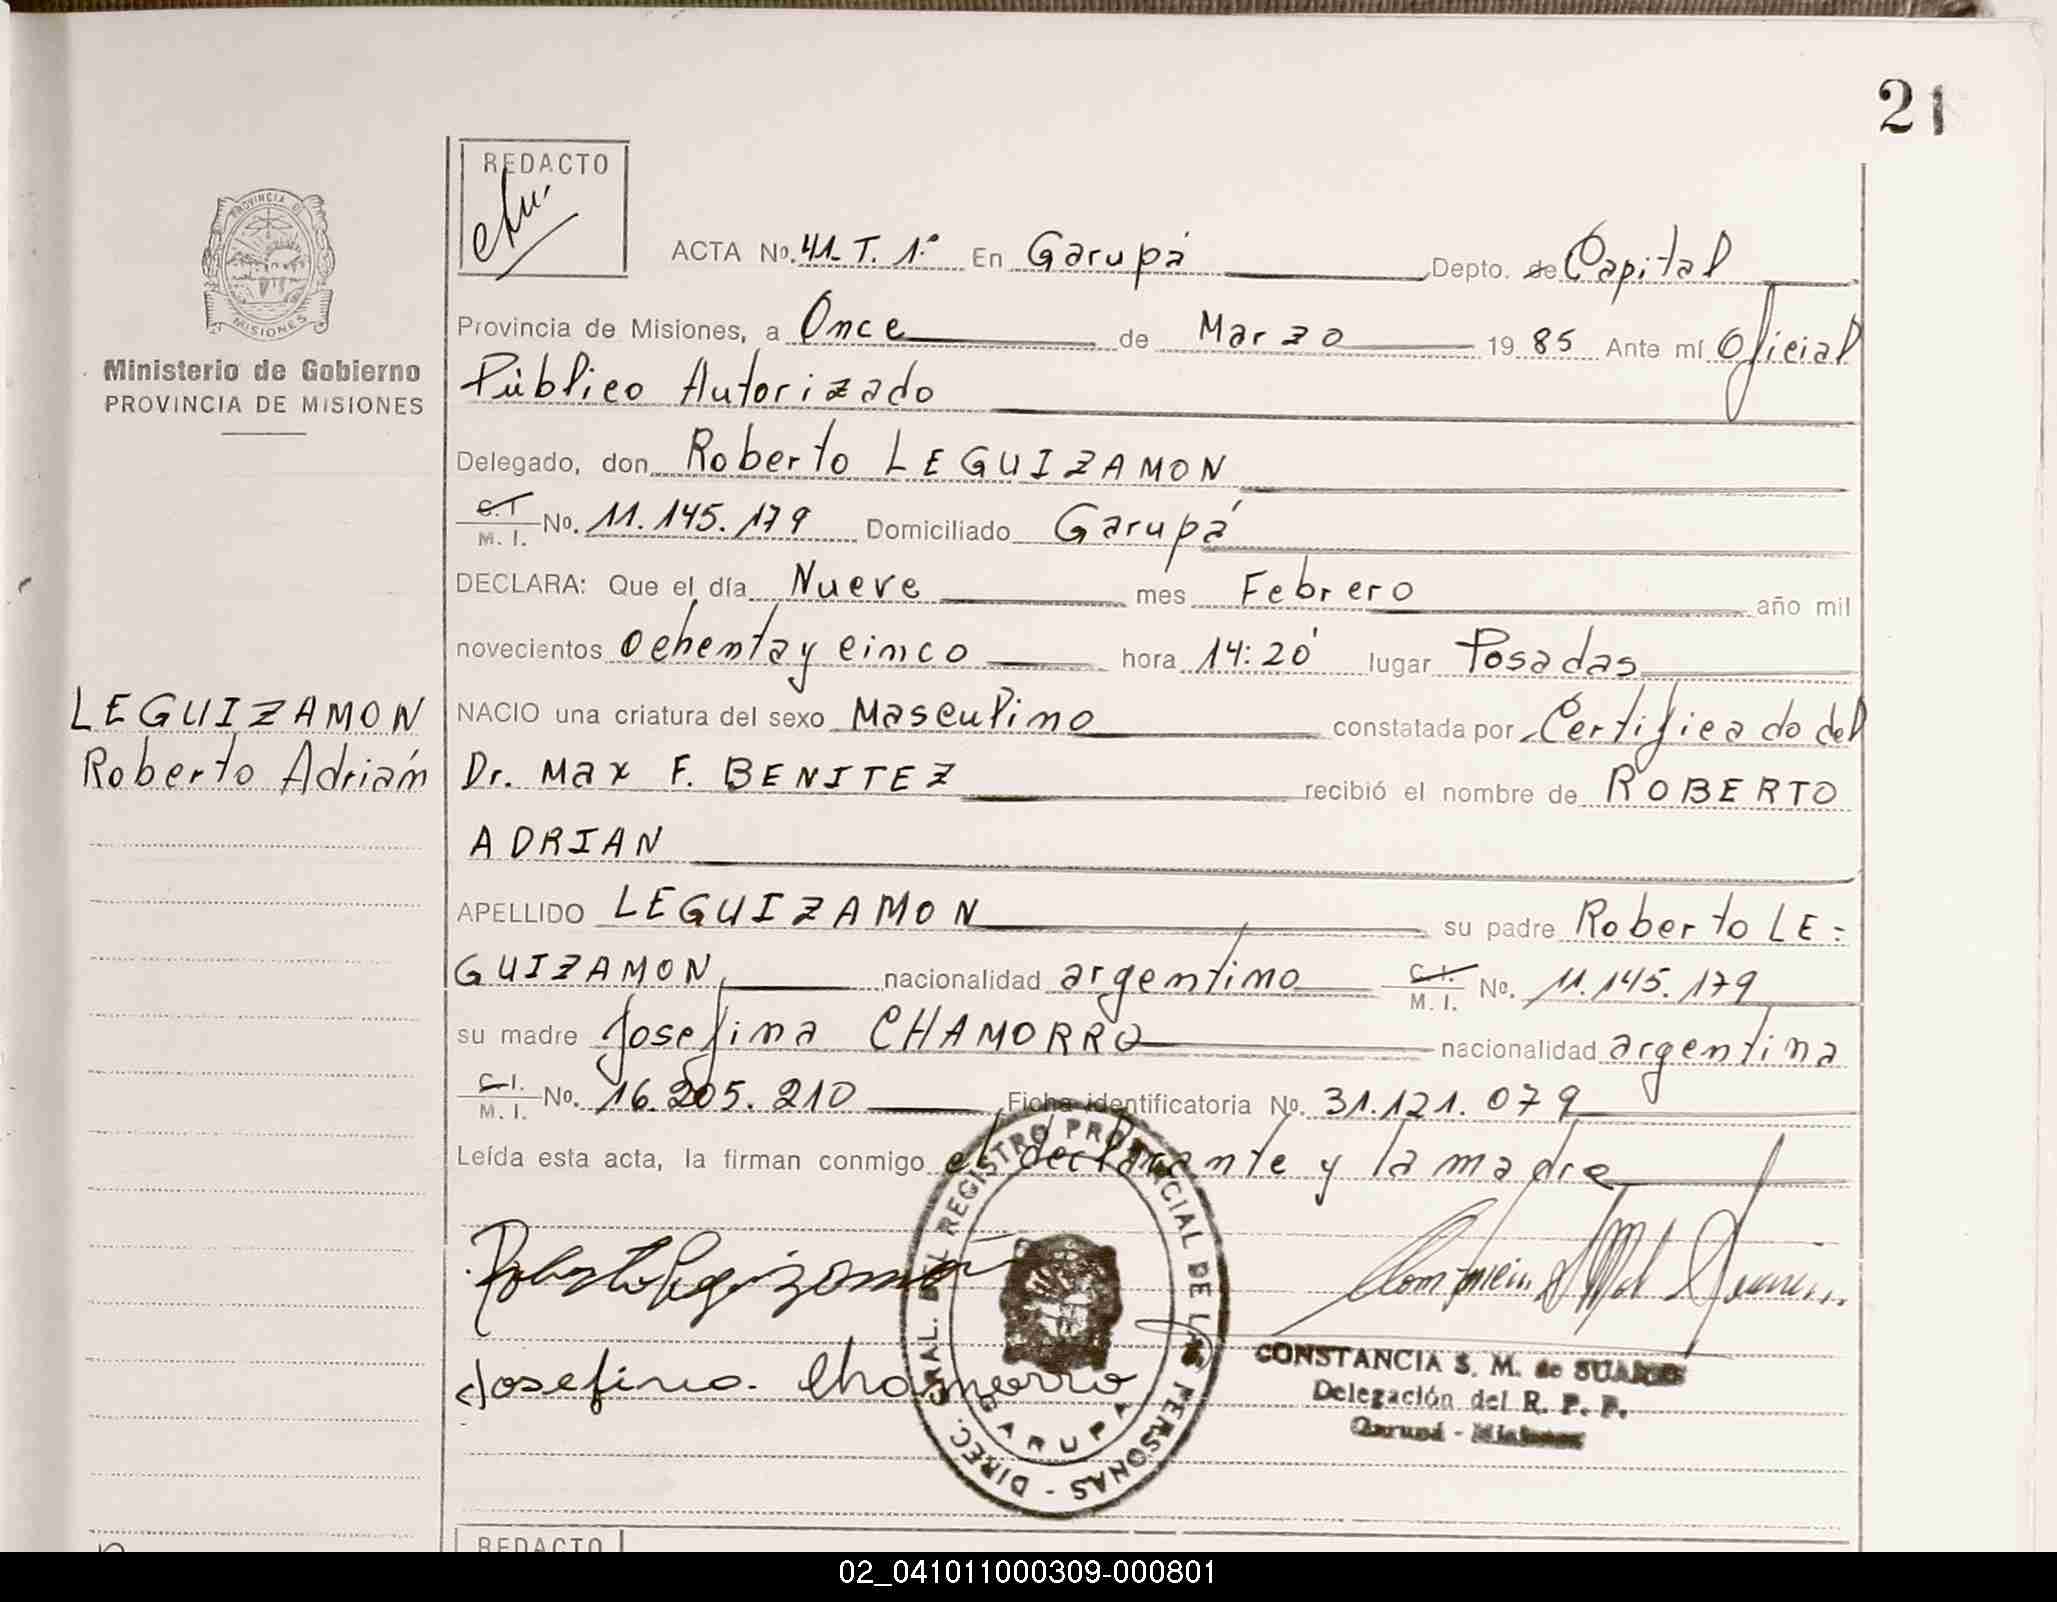 21
REDACTO
PROVINCIA DE
MISIONES
Ministerio de Gobierno
PROVINCIA DE MISIONES
ACTA No. 41. T. 1º En Garupá Depto. de Capital
Provincia de Misiones, a Once de Marzo 19 85 Ante mí Oficial
Público Autorizado
Delegado, don Roberto LEGUIZAMON
C.I. M. I. No. 11.145.179 Domiciliado Garupá
DECLARA: Que el día Nueve mes Febrero año mil
novecientos Ochenta y cinco hora 14:20 lugar Posadas
LEGUIZAMON
Roberto Adrián
NACIO una criatura del sexo Masculino constatada por Certificado del
Dr. Max F. BENITEZ recibió el nombre de ROBERTO
ADRIAN
APELLIDO LEGUIZAMON su padre Roberto LE=
GUIZAMON nacionalidad argentino C.I. M. I. No. 11.145.179
su madre Josefina CHAMORRO nacionalidad argentina
C.I. M. I. No. 16.205.210 Ficha identificatoria No. 31.121.079
Leída esta acta, la firman conmigo el declarante y la madre
Roberto Leguizamon
Josefina Chamorro
DIREC. GRAL. DEL REGISTRO PROVINCIAL DE LAS PERSONAS -
GARUPA
CONSTANCIA S. M. de SUAREZ
Delegación del R. P. P.
Garupá - Misiones
REDACTO
02_041011000309-000801